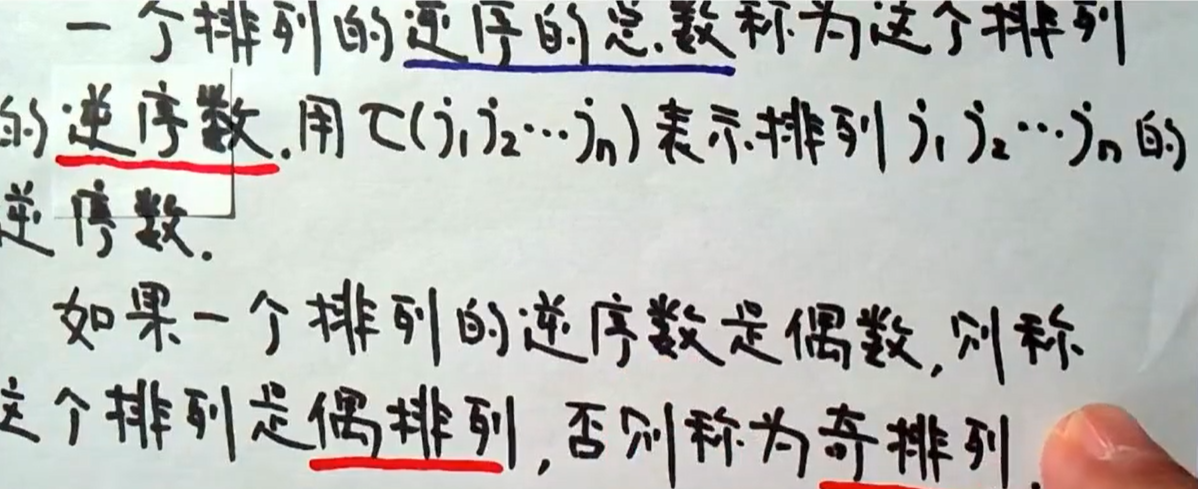 一个排列的逆序的总数称为这个排列
的逆序数.用τ(j₁j₂⋯jₙ)表示排列j₁j₂⋯jₙ的
逆序数.
如果一个排列的逆序数是偶数,则称
这个排列是偶排列,否则称为奇排列.